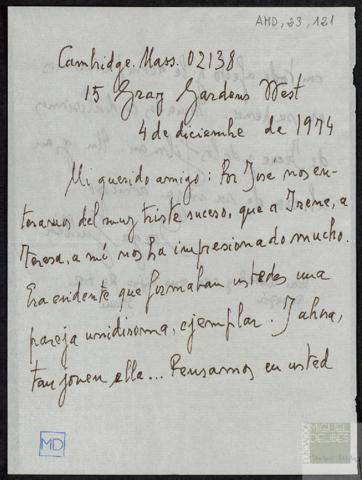 AMD, 23, 121
Cambridge. Mass. 02138
15 Gray Gardens West
4 de diciembre de 1974
Mi querido amigo: Por Jose nos en-
teramos del muy triste suceso, que a Irene, a
Teresa, a mí nos ha impresionado mucho.
Era evidente que formaban ustedes una
pareja unidísima, ejemplar. Y ahora,
tan joven ella... Pensamos en usted
MD
FUNDACIÓN
MIGUEL
DELIBES